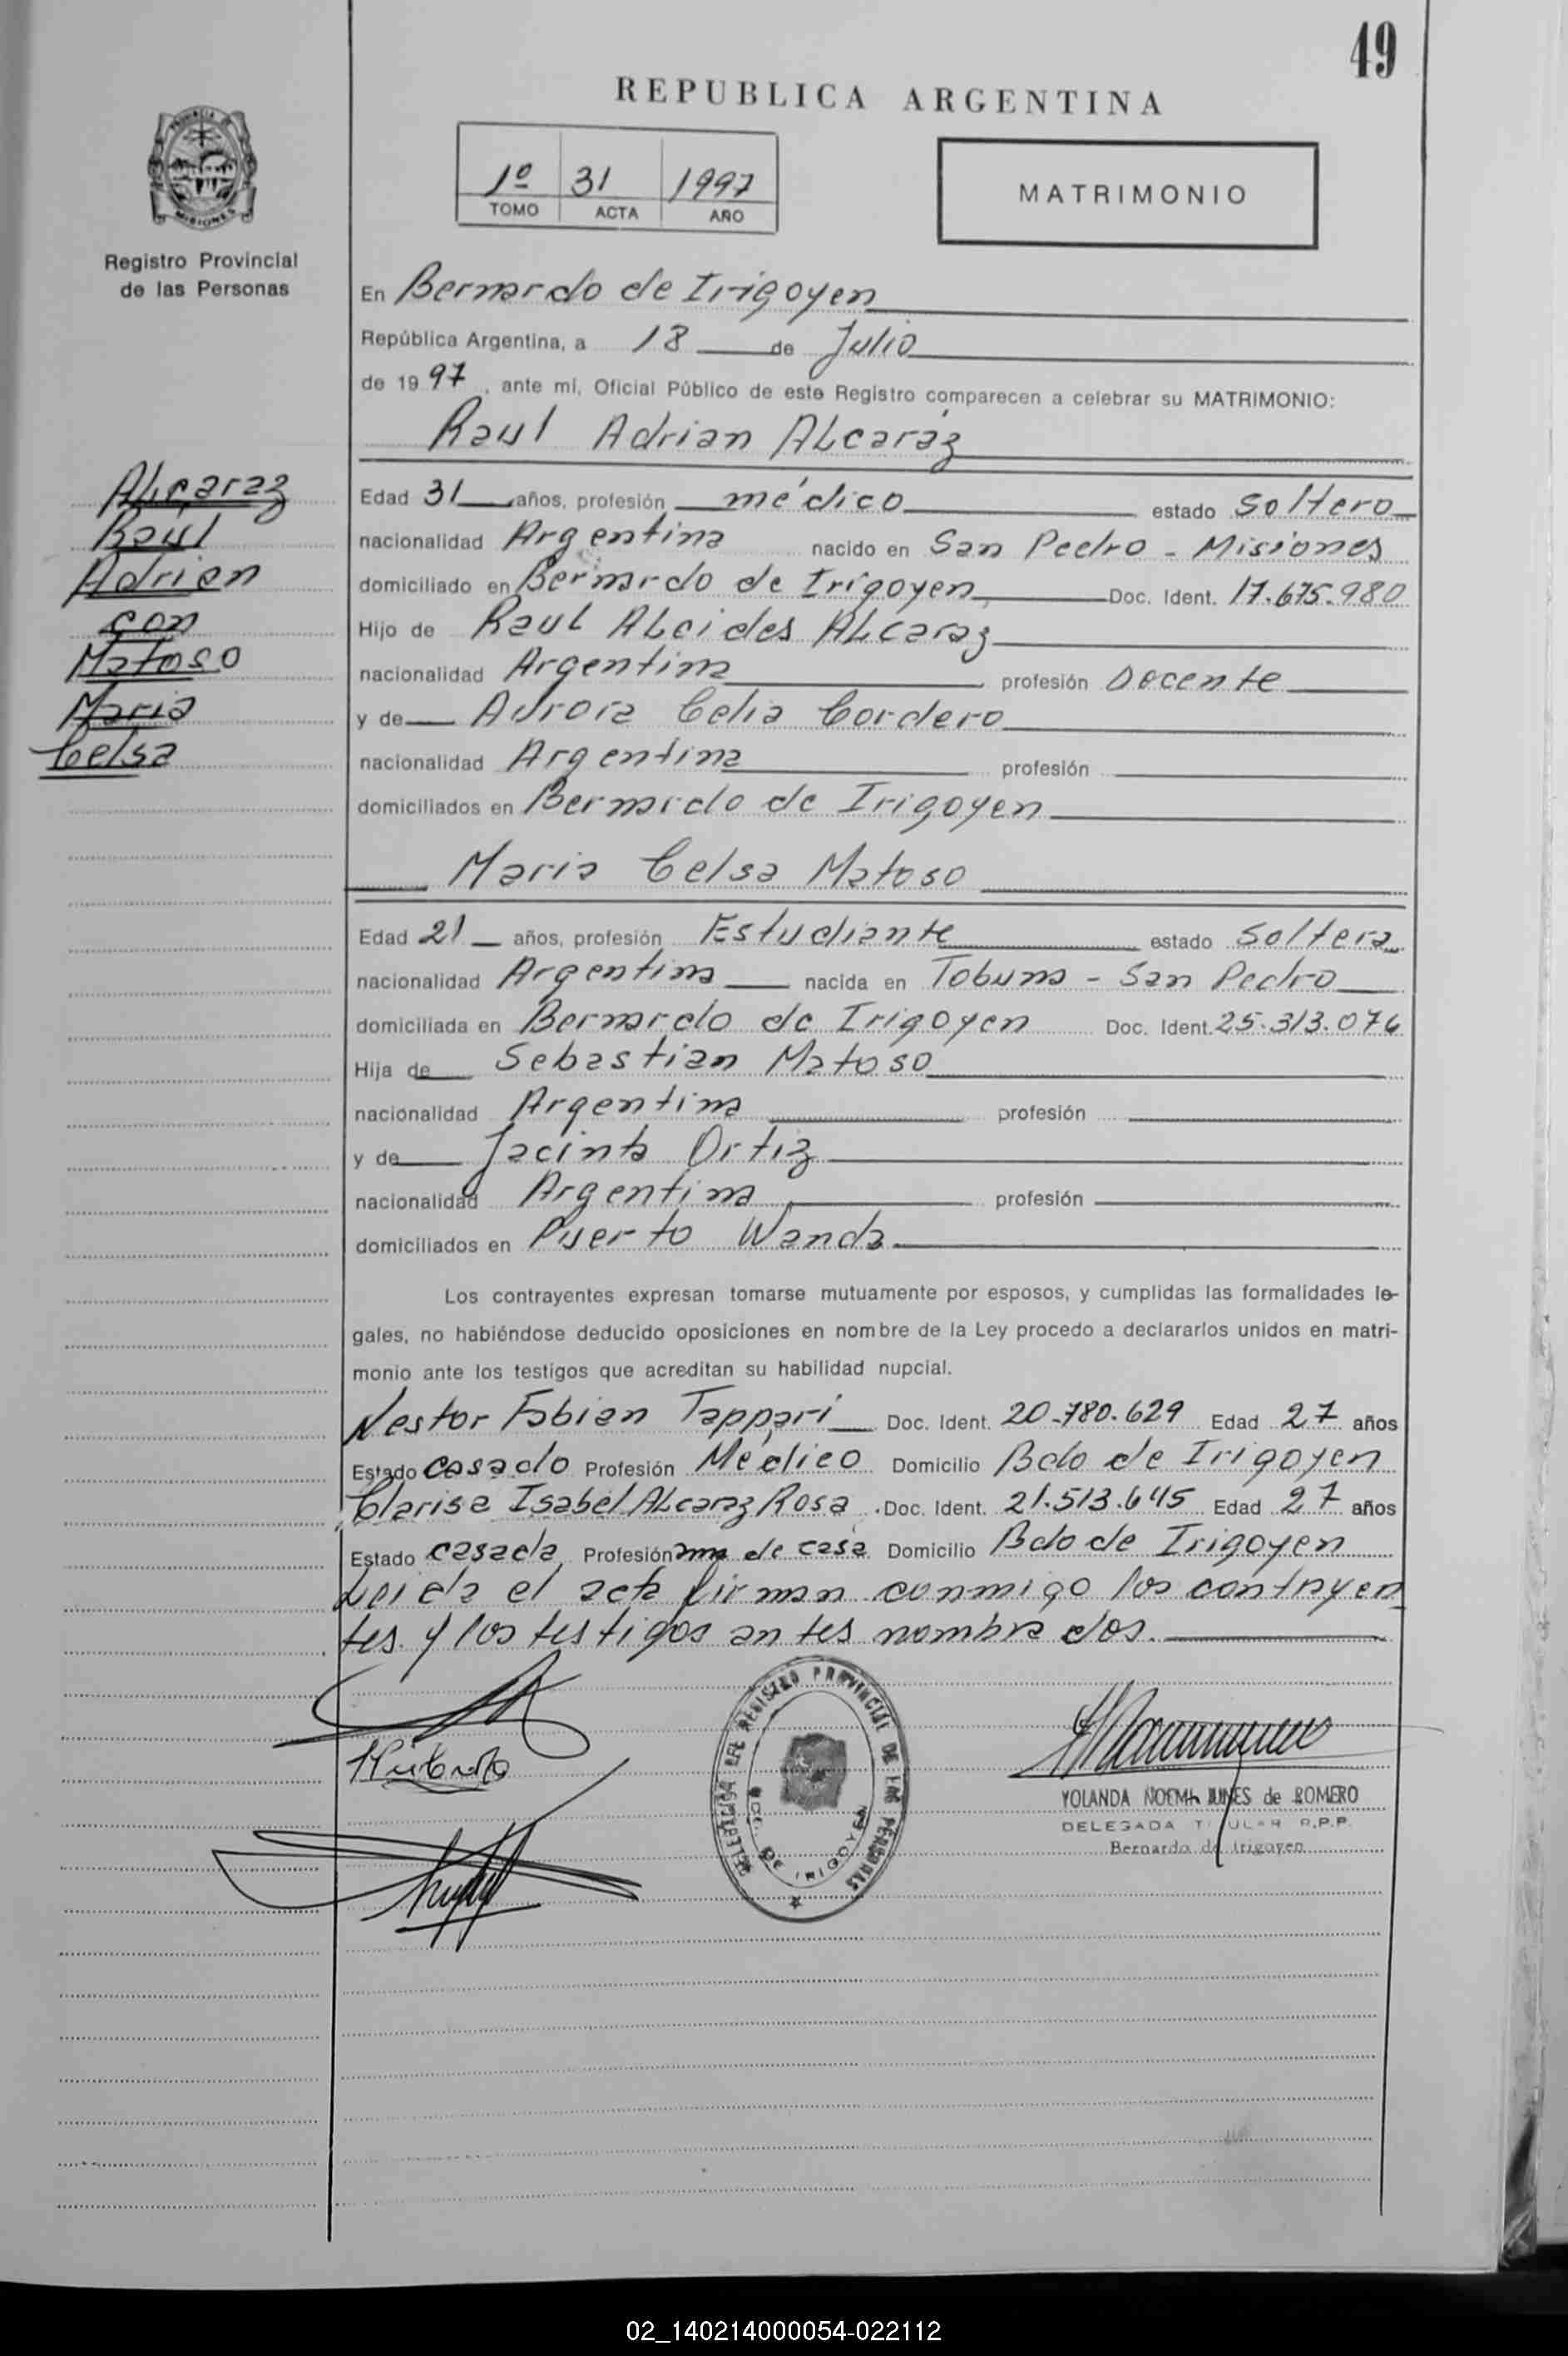 49
REPUBLICA ARGENTINA
1º 31 1997
TOMO ACTA AÑO
MATRIMONIO
MISIONES
Registro Provincial
de las Personas
En Bernardo de Irigoyen
República Argentina, a 18 de Julio
de 1997, ante mí, Oficial Público de este Registro comparecen a celebrar su MATRIMONIO:
Raul Adrian Alcaráz
Alcaraz
Raul
Adrian
con
Matoso
Maria
Celsa
Edad 31 años, profesión médico estado Soltero
nacionalidad Argentina nacido en San Pedro - Misiones
domiciliado en Bernardo de Irigoyen Doc. Ident. 17.675.980
Hijo de Raul Alcides Alcaraz
nacionalidad Argentina profesión Docente
y de Aurora Celia Cordero
nacionalidad Argentina profesión
domiciliados en Bernardo de Irigoyen
Maria Celsa Matoso
Edad 21 años, profesión Estudiante estado Soltera
nacionalidad Argentina nacida en Tobuna - San Pedro
domiciliada en Bernardo de Irigoyen Doc. Ident. 25.313.076
Hija de Sebastian Matoso
nacionalidad Argentina profesión
y de Jacinta Ortiz
nacionalidad Argentina profesión
domiciliados en Puerto Wanda
Los contrayentes expresan tomarse mutuamente por esposos, y cumplidas las formalidades le-
gales, no habiéndose deducido oposiciones en nombre de la Ley procedo a declararlos unidos en matri-
monio ante los testigos que acreditan su habilidad nupcial.
Nestor Fabian Tappari Doc. Ident. 20.780.629 Edad 27 años
Estado casado Profesión Médico Domicilio Bdo de Irigoyen
Clarisa Isabel Alcaraz Rosa Doc. Ident. 21.513.645 Edad 27 años
Estado casada Profesión ama de casa Domicilio Bdo de Irigoyen
Leida el acta firman conmigo los contrayen
tes y los testigos antes nombrados.
DELEGACION DEL REGISTRO PROVINCIAL DE LAS PERSONAS
BDO. DE IRIGOYEN
YOLANDA NOEMI NUNES de ROMERO
DELEGADA TITULAR R.P.P.
Bernardo de Irigoyen
02_140214000054-022112